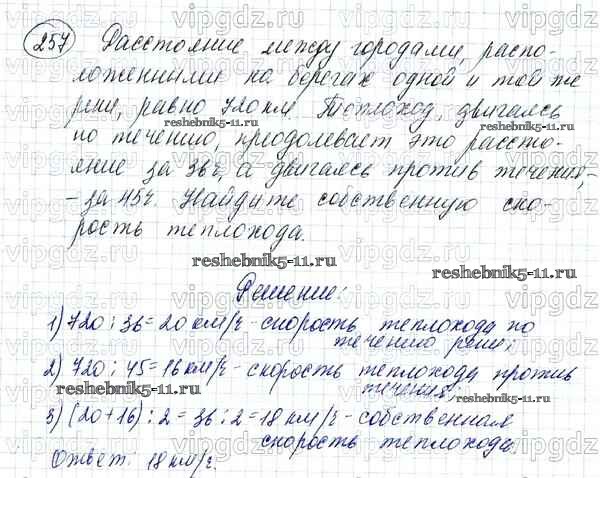 257 Расстояние между городами, распо-
ложенными на берегах одной и той же
реки, равно 720 км. Теплоход, двигаясь
по течению, преодолевает это расстоя-
ние за 36 ч, а двигаясь против течения,-
- за 45 ч. Найдите собственную ско-
рость теплохода.
reshebnik5-11.ru
Решение:
1) 720 : 36 = 20 км/ч - скорость теплохода по
течению реки;
2) 720 : 45 = 16 км/ч - скорость теплохода против
течения;
3) (20 + 16) : 2 = 36 : 2 = 18 км/ч - собственная
скорость теплохода.
Ответ: 18 км/ч.